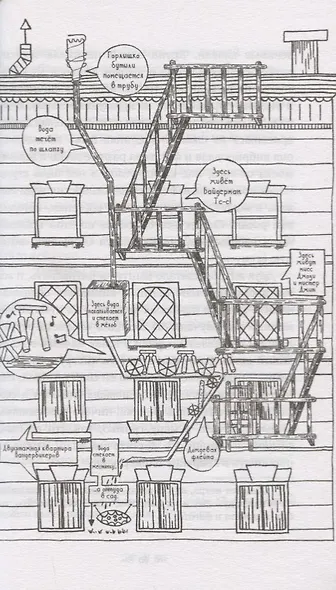 Горлышко
бутыли
помещается
в трубу
Вода
течёт
по шлангу
Здесь
живёт
Байдерман
Тс-с!
Здесь
живут
мисс
Джози
и мистер
Джит
Здесь вода
накапливается
и стекает
в жёлоб
Двухэтажная квартира
Вандербикеров
Вода
стекает
в мельницу...
...а оттуда
в сад.
Дождевая
флейта